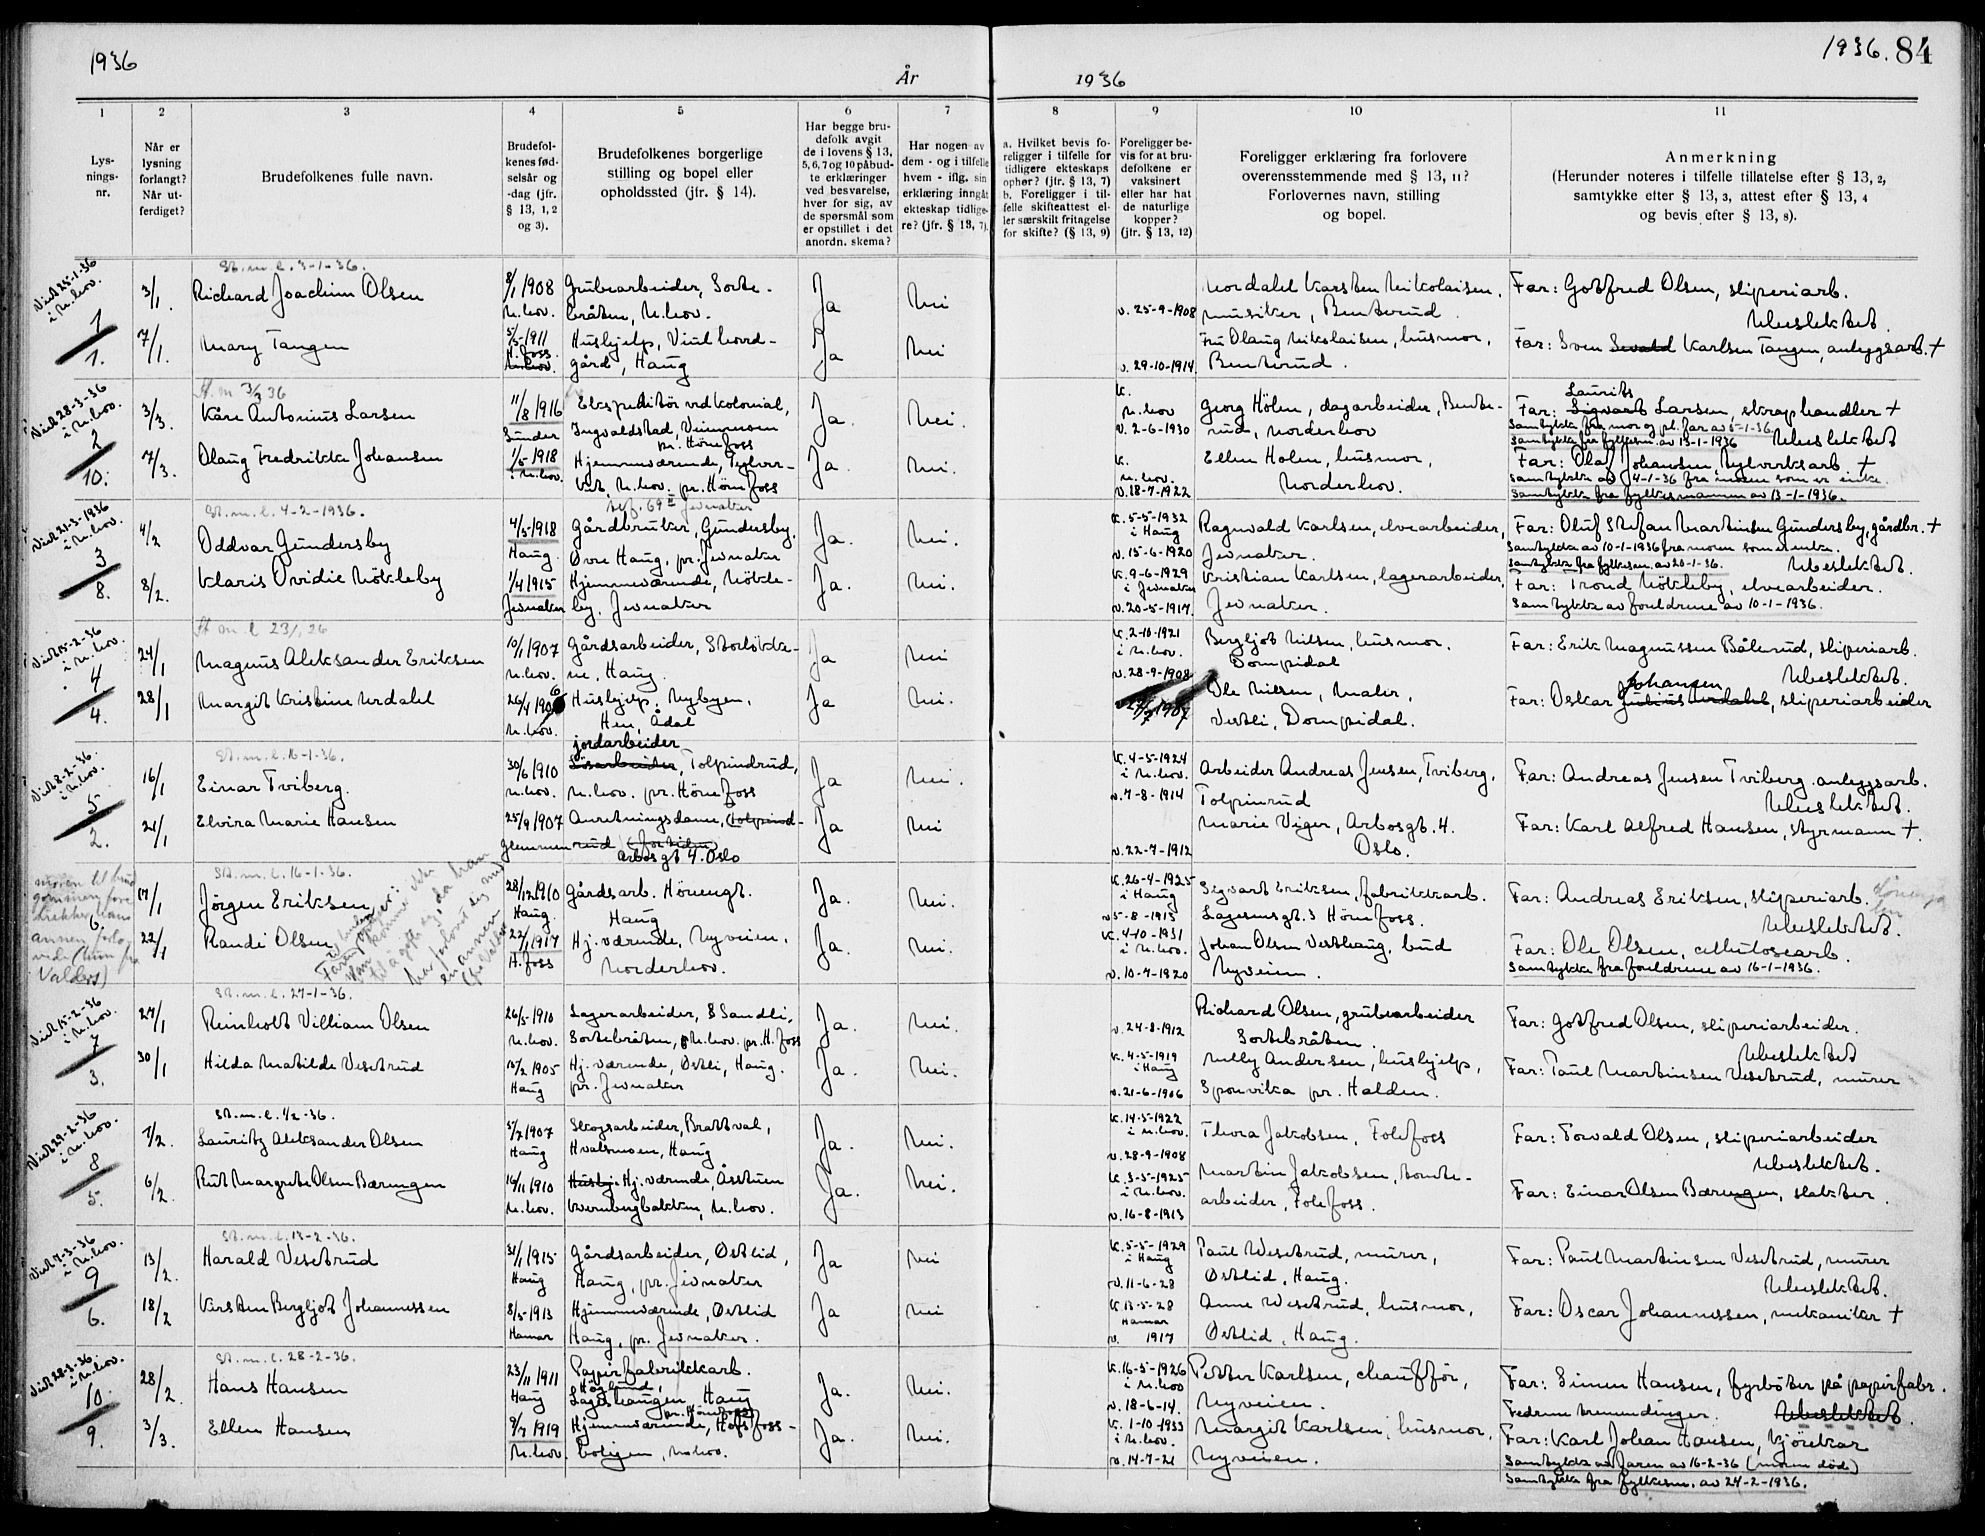 1936
År
1936
1936. 84
1
2
3
4
5
6
7
8
9
10
11
Lys-
nings-
nr.
Når er
lysning
forlangt?
Når ut-
ferdiget?
Brudefolkenes fulle navn.
Brudefol-
kenes fød-
selsår og
-dag (jfr.
§ 13, 1, 2
og 3).
Brudefolkenes borgerlige
stilling og bopel eller
opholdssted (jfr. § 14).
Har begge bru-
defolk avgit
de i lovens § 13,
5, 6, 7 og 10 påbud-
te erklæringer
ved besvarelse,
hver for sig, av
de spørsmål som
er opstillet i det
anordn. skema?
Har nogen av
dem - og i tilfelle
hvem - iflg. sin
erklæring inngåt
ekteskap tidlige-
re? (jfr. § 13, 7).
a. Hvilket bevis fo-
religger i tilfelle for
tidligere ekteskaps
ophør? (jfr. § 13, 7)
b. Foreligger i til-
felle skifteattest el-
ler særskilt fritagelse
for skifte? (§ 13, 9)
Foreligger be-
vis for at bru-
defolkene er
vaksinert
eller har hat
de naturlige
kopper?
(jfr. § 13, 12)
Foreligger erklæring fra forlovere
overensstemmende med § 13, 11?
Forlovernes navn, stilling
og bopel.
Anmerkning
(Herunder noteres i tilfelle tillatelse efter § 13, 2,
samtykke efter § 13, 3, attest efter § 13, 4
og bevis efter § 13, 8).
Viet 25-1-36
i N.hov.
1
1.
St. m. l. 3-1-36.
3/1.
Richard Joachim Olsen
8/1 1908
N.hov.
Grubearbeider, Sorte-
bråten, N.hov.
Ja
Nei
v. 25-9-1908
Nordahl Karsten Nikolaisen,
musiker, Benterud.
Far: Gotfred Olsen, sliperiarb.
Ubeslektet.
7/1.
Mary Tangen
5/5-1911
H.foss
N.hov.
Hushjelp, Vind hord-
gård, Haug
Ja
Nei
v. 29-10-1914
Fru Olaug Nikolaisen, husmor,
Benterud.
Far: Sven Sevald Karlsen Tangen, anleggsarb. +
Viet 28-3-36
i N.hov.
2
10.
St. m 3/3 36
3/3.
Kåre Antonius Larsen
11/8 1916
Sunder
Ekspeditör ved kolonial,
Ingvaldstad, Vinmoen
pr. Hönefoss
Ja.
Nei.
K.
N.hov
V. 2-6-1930
Georg Hölen, dagarbeider, Bente-
rud, Norderhov
Laurits
Far: Sigvart Larsen, skraphandler +
Samtykke fra mor og pl. far av 5-1-36.
Samtykke fra fylkesm. av 13-1-1936
Ubeslektet
7/3.
Olaug Fredrikke Johansen
1/5-1918
N.hov.
Hjemmeværende, Teglver-
ket, N.hov. pr. Hönefoss
Ja.
Nei.
K.
N.hov.
V. 18-7-1922
Ellen Holen, husmor,
Norderhov.
Far: Olaf Johansen, Nylverksarb. +
Samtykke av 4-1-36 fra moren som er enke.
Samtykke fra fylkesmannen av 13-1-1936.
Viet 21-3-1936
i N.hov.
3
8.
St. m. l. 4-2-1936.
4/2
Oddvar Gundersby
4/5-1918
Haug.
Gårdbruker, Gundersby,
Övre Haug, pr. Jevnaker
Ja.
Nei.
K. 5-5-1932
i Haug
v. 15-6-1920
Ragnvald Karlsen, elvearbeider,
Jevnaker.
Far: Oluf Stefan Martinsen Gundersby, gårdbr. +
Samtykke av 10-1-1936 fra moren som er enke.
Samtykke fra fylkesm. av 20-1-36.
Ubeslektet.
8/2.
Klaris Ovidie Nökleby
1/4 1915
Jevnaker
Hjemmeværende, Nökle-
by, Jevnaker
Ja.
Nei.
K. 9-6-1929
i Jevnaker
v. 20-5-1917.
Kristian Karlsen, lagerarbeider,
Jevnaker.
Far: Trond Nökleby, elvearbeider.
Samtykke av foreldrene av 10-1-1936.
Viet 15-2-36
i N.hov.
4
4.
24/1
Magnus Aleksander Eriksen
10/1 1907
N.hov.
Gårdsarbeider, Storlökke-
ne, Haug.
Ja
Nei
K. 2-10-1921
i N.hov.
v. 28-9-1908
Bergljot Nilsen, husmor.
Dompidal
Far: Erik Magnussen Bålerud, sliperiarb.
Ubeslektet.
28/1
Margit Kristine Urdahl
26/4 1906
N.hov.
Hushjelp, Nybyen,
Hen, Ådal
Ja
Nei
1907
Ole Nilsen, maler,
Vestli, Dompidal.
Johansen
Far: Oskar Julius Urdahl, sliperiarbeider
Viet 8-2-36.
i N.hov.
5
2.
St. m. l. 16-1-36.
16/1
Einar Tviberg.
30/6 1910
N.hov.
jordarbeider
Tolpinrud,
N.hov. pr. Hönefoss
Ja
Nei.
K. 4-5-1924
i N.hov.
v. 7-8-1914
Arbeider Andreas Jensen, Tviberg,
Tolpinrud
Far: Andreas Jensen Tviberg, anleggsarb.
Ubeslektet.
21/1
Elvira Marie Hansen
25/9 1907
Glemmen
Anretningsdame, Tolpind-
rud
Arbosgt 4. Oslo
Ja
Nei
v. 22-7-1912
Marie Viger, Arbosgt. 4.
Oslo.
Far: Karl Alfred Hansen, styrmann +.
6.
St. m. l. 16-1-36.
17/1
Jörgen Eriksen
28/12 1910
Haug.
Gårdsarb. Hönengt.
Haug
Ja.
Nei.
K. 26-4-1925
i Haug
v. 5-8-1913
Sigvart Eriksen, fabrikkarb.
Lagesensgt. 3 Hönefoss.
Far: Andreas Eriksen, sliperiarb.
Ubeslektet.
22/1
Randi Olsen
22/1 1917
H.foss
Hj. værende, Nyveien,
Norderhov.
Ja.
Nei.
K. 4-10-1931
i N.hov.
v. 10-4-1920
Johan Olsen Vesthaug, bud
Nyveien.
Far: Ole Olsen, cellulosearb.
Samtykke fra foreldrene av 16-1-1936.
Viet 15-2-36
i N.hov.
7
3.
St. m. l. 27-1-36.
27/1
Reinholt Villiam Olsen
26/5-1910
N.hov.
Lagerarbeider, Sandli,
Sortebråten, N.hov. pr. H.foss
Ja.
Nei.
v. 24-8-1912
Richard Olsen, grubearbeider
Sortebråten.
Far: Gotfred Olsen, sliperiarbeider.
Ubeslektet
30/1
Hilda Matilde Vesetrud
15/2 1905
Haug
Hj. værende, Östli, Haug.
pr. Jevnaker
Ja.
Nei.
K. 4-5-1919
i Haug
v. 21-6-1906
Nelly Andersen, hushjelp,
Sponvika pr. Halden.
Far: Paul Martinsen Vesetrud, murer
Viet 29-2-36
i N.hov.
8
5.
St. m. l. 1/2-36.
1/2.
Lauritz Aleksander Olsen
5/7 1907
Haug
Skogsarbeider, Brattval,
Hvalsmoen, Haug
Ja.
Nei.
K. 14-5-1922
i N.hov.
v. 28-9-1908
Thora Jakobsen, Follefoss
Far: Torvald Olsen, sliperiarbeider
Ubeslektet.
6/2.
Rut Margrete Olsen Bærengen
16/11 1910
N.hov.
Hushj. Hj. værende, Åstuen
Kvernbergbakken, N.hov.
Ja.
Nei.
K. 3-5-1925
i N.hov.
v. 16-8-1913
Martin Jakobsen, tomte-
arbeider, Follefoss.
Far: Einar Olsen Bærengen, slakter.
Viet 7-3-36
i N.hov.
9
6.
St. m. l. 13-2-36.
13/2.
Harald Vesetrud
31/1 1915
Haug
Gårdsarbeider, Östlid,
Haug, pr. Jevnaker
Ja
Nei
K. 5-5-1929
i Haug
v. 11-6-28
Paul Wesetrud, murer,
Östlid, Haug.
Far: Paul Martinsen Vesetrud, murer
Ubeslektet.
18/2
Kirsten Bergljot Johannessen
8/5-1913
Hamar
Hjemmeværende, Östlid
Haug, pr. Jevnaker.
Ja
Nei
K 13-5-28
Hamar
v. 1917
Anne Wesetrud, husmor,
Östlid, Haug.
Far: Oscar Johannessen, mekaniker +
Viet 28-3-36.
i N.hov.
10.
9.
St. m. l. 28-2-36.
28/2
Hans Hansen
23/11 1911
Haug
Papirfabrikkarb.
Höglund,
Lagshaugen Haug
pr. Hönefoss
Ja.
Nei.
K. 16-5-1926
i N.hov
v. 18-6-14.
Petter Karlsen, chaufför,
Nyveien.
Far: Simen Hansen, fyrböter på papirfabr.
Fedrene tremendinger.
Ubeslektet.
3/3.
Ellen Hansen
9/7 1919
N.hov.
Hjemmeværende, Hofsfoss-
boligen, N.hov.
Ja.
Nei.
K. 1-10-1933
i N.hov.
v. 14-7-21
Margit Karlsen, husmor,
Nyveien.
Far: Karl Johan Hansen, kjörekar
Samtykke av faren av 16-2-36 (moren död)
Samtykke fra fylkesm. av 24-2-1936.